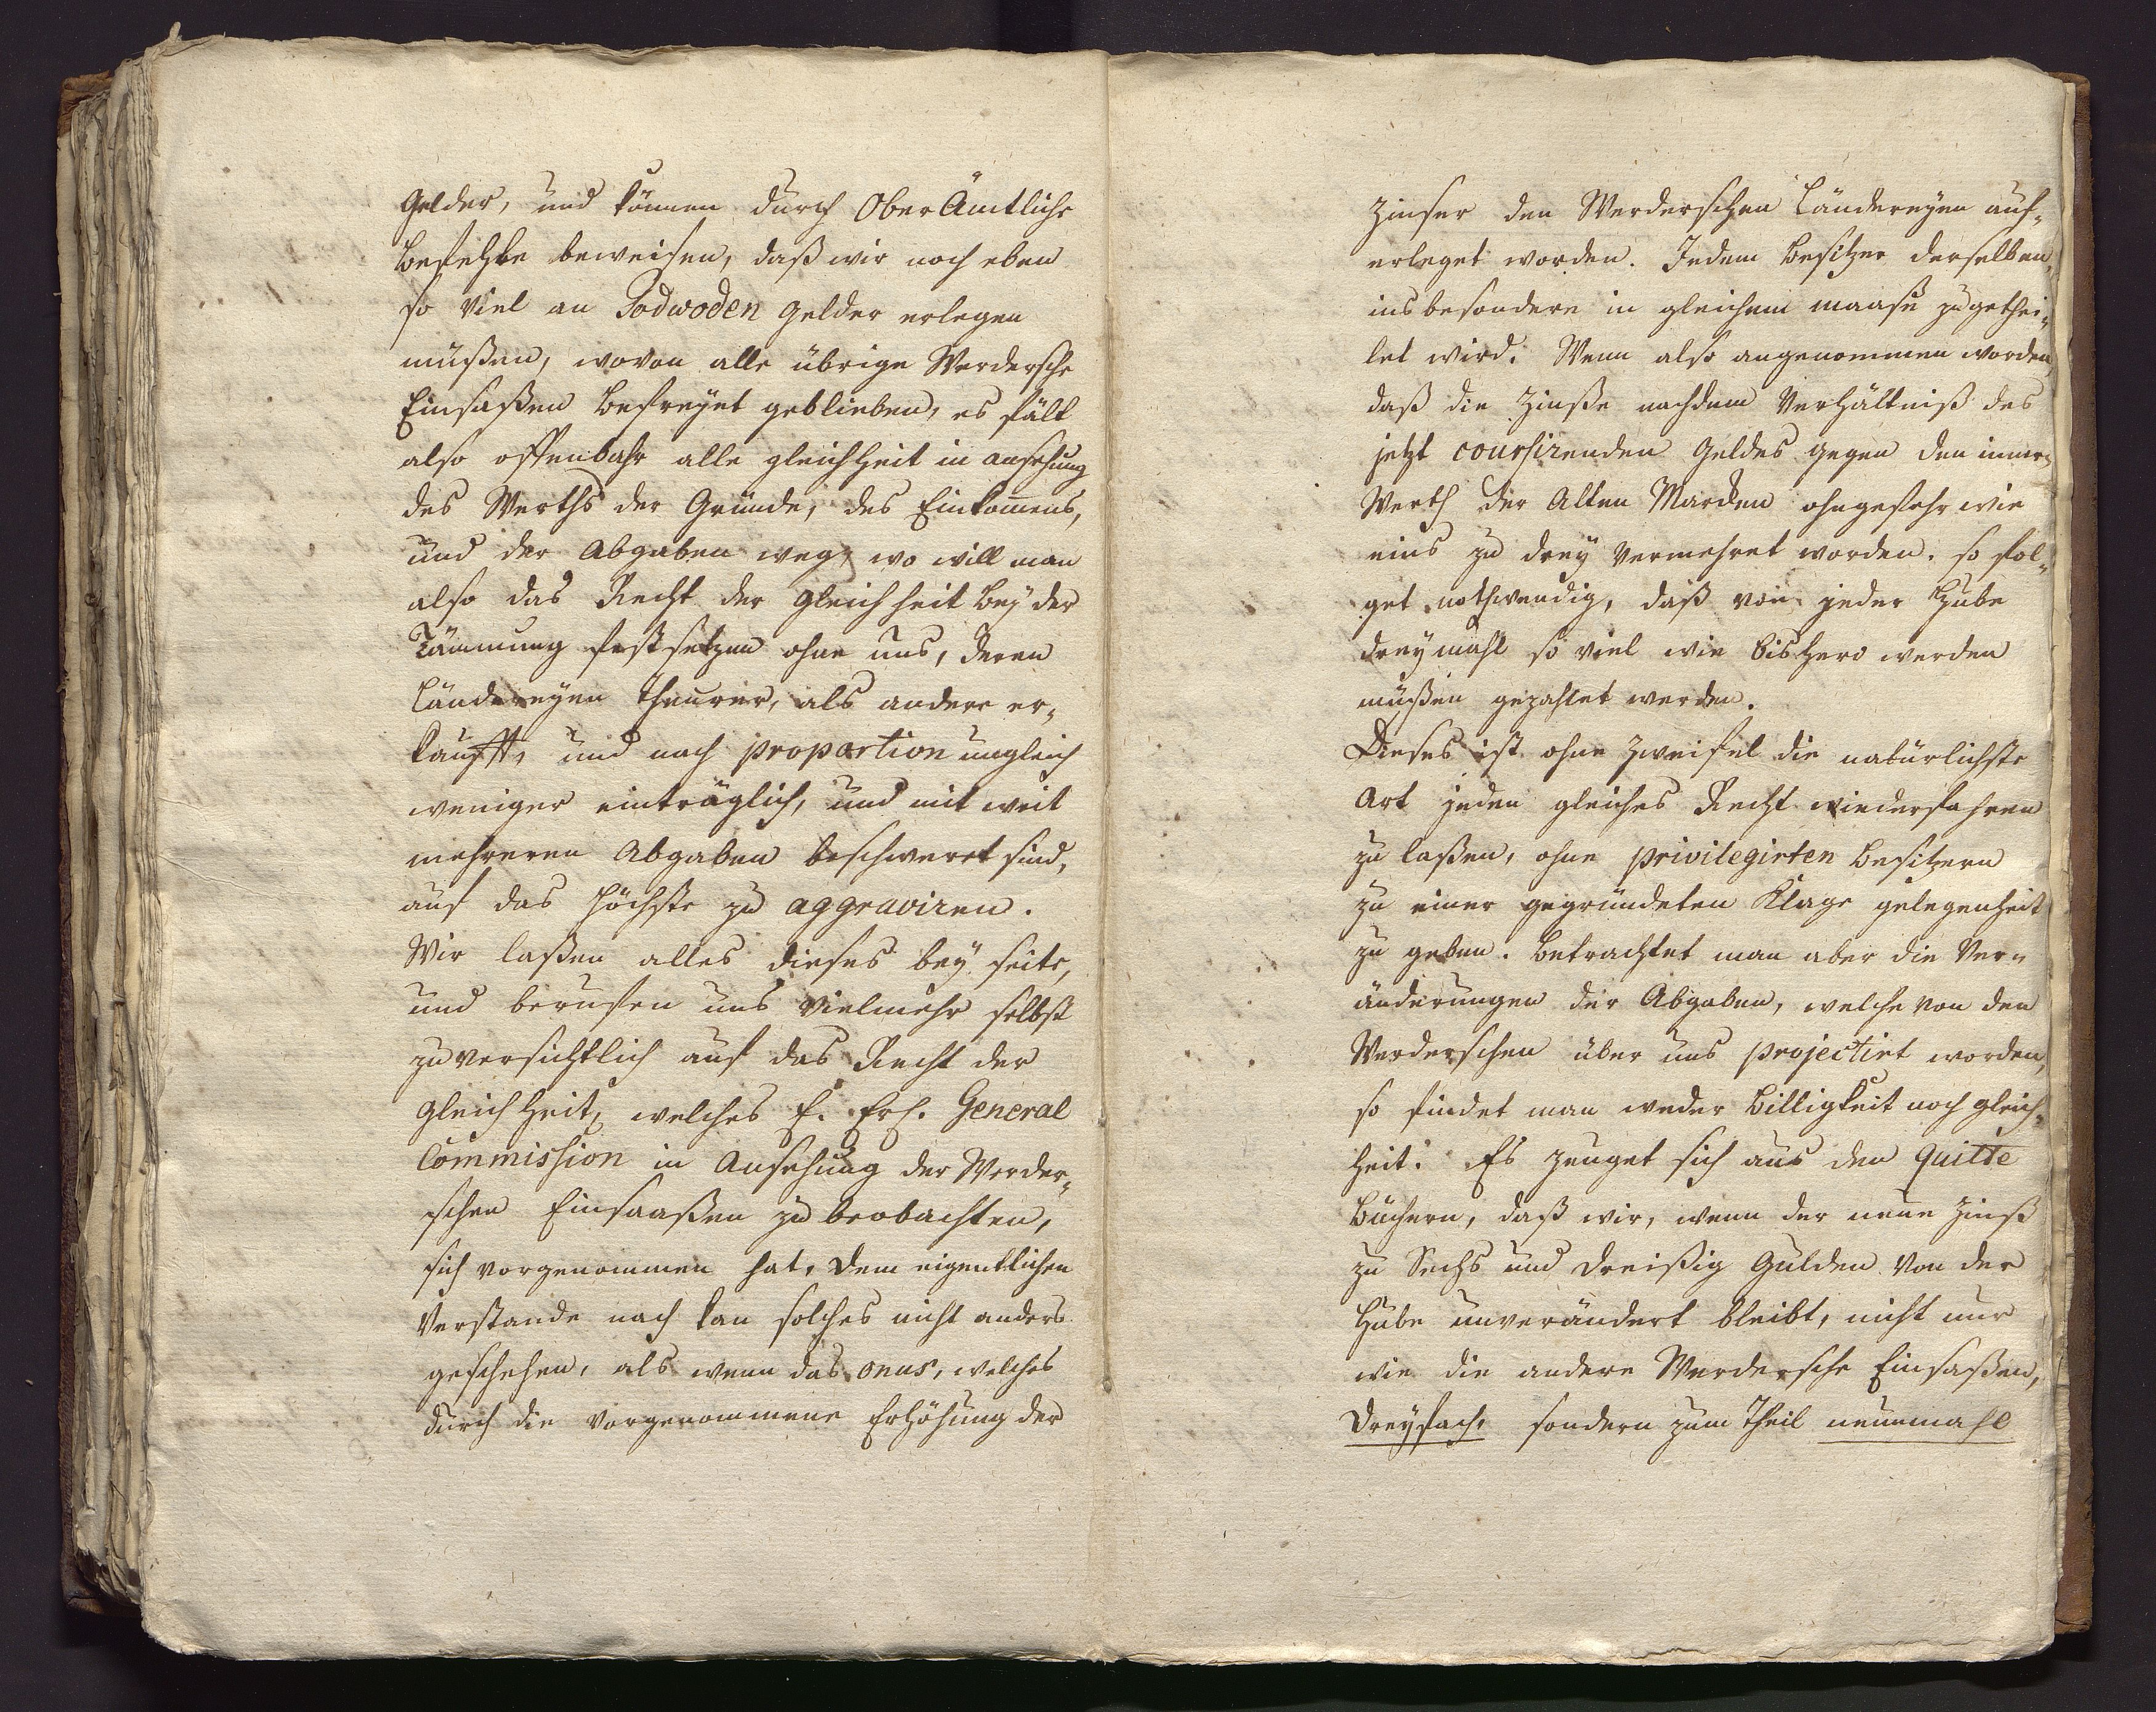 Gelder, und können durch OberÄmtliche
Befehle beweisen, daß wir noch eben
so viel an Podwoden Gelder erlegen
müßen, wovon alle übrige Werdersche
Einsaßen befreyet geblieben, es fält
also offenbahr alle gleichheit in ansehung
des Werths der Gründe, des Einkom̄ens,
und der Abgaben weg, wo will man
also das Recht der gleichheit bey der
festsetzen ohne uns, deren
Ländereyen theurer, als andere er„
kaufft, und nach proportion ungleich
weniger einträglich, und mit weit
mehreren Abgaben beschweret sind,
auf das höchste zu aggraviren.
Wir laßen alles dieses bey seite,
und berufen uns vielmehr selbst
zuversichtlich auf das Recht der
gleichheit, welches E. Erl. General
Commission in Ansehung der Werder„
schen Einsaaßen zu beobachten,
sich vorgenommen hat, dem eigentlichen
Verstande nach kan solches nicht anders
geschehen, als wenn das onus, welches
durch die vorgenommene Erhöhung der
Zinser den Werderschen Ländereyen auf„
erleget worden. Jedem Besitzer derselben,
ins besondere in gleichem maase zugethei„
let wird. Wenn also angenommen worden,
daß die Zinße nachdem Verhältniß des
jetzt coursirenden Geldes gegen den innern
Werth der Alten Marcken ohngefehr wie
eins zu drey vermehret worden. so fol„
get nothwendig, daß von jeder Hube
dreymahl so viel wie bishero werden
müßen gezahlet werden.
Dieses ist ohne Zweifel die natürlichste
Art jeden gleiches Recht wiederfahren
zu laßen, ohne privilegirten Besitzern
zu einer gegründeten Klage gelegenheit
zu geben. Betrachtet man aber die Ver„
änderungen der Abgaben, welche von den
Werderschen über uns projectirt worden,
so findet man weder Billigkeit noch gleich„
heit. Es zeuget sich aus den Quitte
Büchern, daß wir, wenn der neue Zinß
zu Sechs und dreißig Gulden von der
Hube unverändert bleibt, nicht nur
wie die andere Werdersche Einsaßen,
dreyfach, sondern zum Theil neunmahl